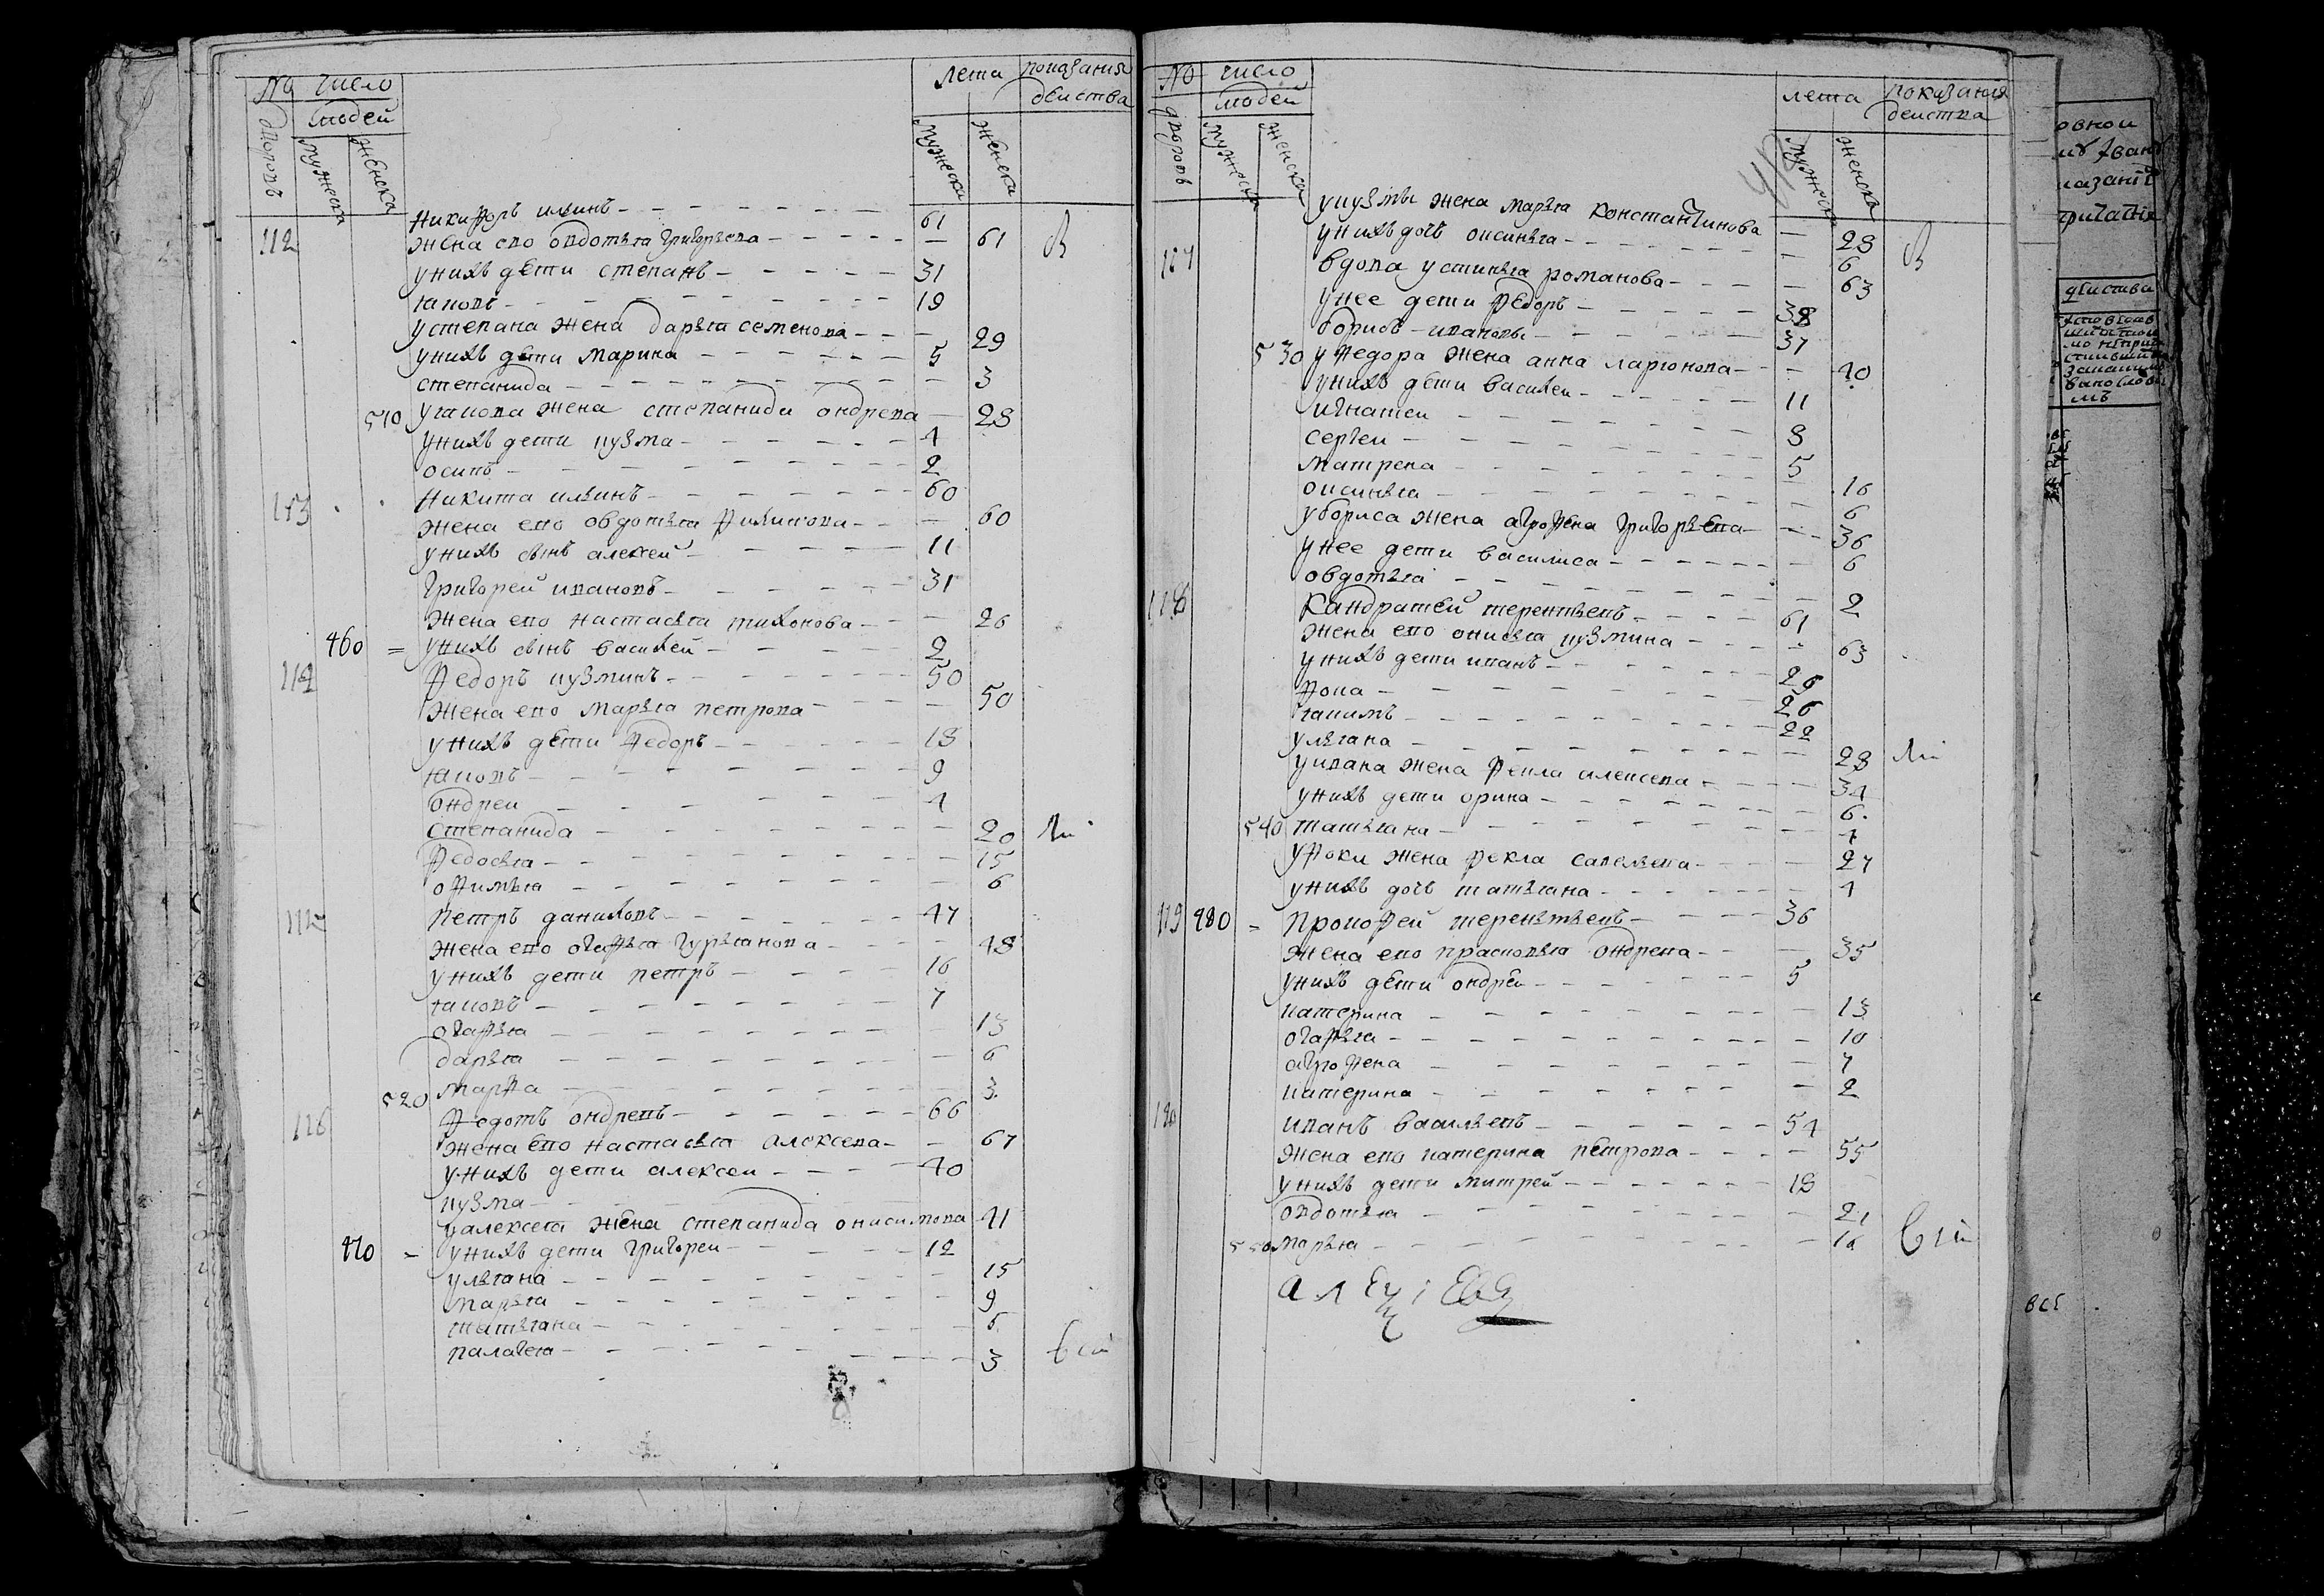 № число лета показания
дворовъ людей действа
мужеска женска мужеска женска
112 Никифоръ ильинъ 61
жена ево овдотья григорьева 61
у нихъ дети степанъ 31
яковъ 19
у степана жена дарья семенова 29
у нихъ дети марина 5
степанида 3
510 у якова жена степанида ондрева 28
у нихъ дети кузма 4
осипъ 2
113 Никита ильинъ 60
жена ево овдотья филипова 60
у нихъ сынъ алексей 11
григорей ивановъ 31
жена ево настасья тихонова 26
460 у нихъ сынъ василей 2
114 Федоръ кузминъ 50
жена ево марья петрова 50
у нихъ дети федоръ 18
яковъ 9
ондреи 4
степанида 20
федосья 15
офимья 6
115 петръ даниловъ 47
жена ево огафья гурьянова 48
у нихъ дети петръ 16
яковъ 7
огафья 13
дарья 6
520 марфа 3
116 Федотъ ондревъ 66
жена ево настасья алексева 67
у нихъ дети алексеи 40
кузма
у алексея жена степанида онисимова 41
470 у нихъ дети григореи 12
ульяна 15
марья 9
татьяна 5
палагея 3
№ число лета показания
дворовъ людей действа
мужеска женска мужеска женска
у кузмы жена марья константинова 28
у нихъ дочь оксинья 6
117 вдова устинья романова 63
у нее дети федоръ 38
борисъ ивановы 37
530 у федора жена анна ларионова 40
у нихъ дети василеи 11
игнатеи 8
сергеи 5
матрена 16
оксинья 6
у бориса жена агрофена григорьева 36
у нее дети василиса 6
овдотья 2
118 Кандратей терентьевъ 61
жена ево онисья кузмина 63
у нихъ дети иванъ 29
фока 26
якимъ 22
ульяна 28
у ивана жена фекла алексева 34
у нихъ дети орина 6
540 татьяна 4
у фоки жена фекла савельева 27
у нихъ дочь татьяна 4
119 480 Прокофей терентьевъ 36
жена ево прасковья ондрева 35
у нихъ дети ондреи 5
катерина 13
огафья 10
агрофена 7
катерина 2
120 иванъ васильевъ 54
жена ево катерина петрова 55
у нихъ дети митрей 18
овдотья 21
550 марья 16